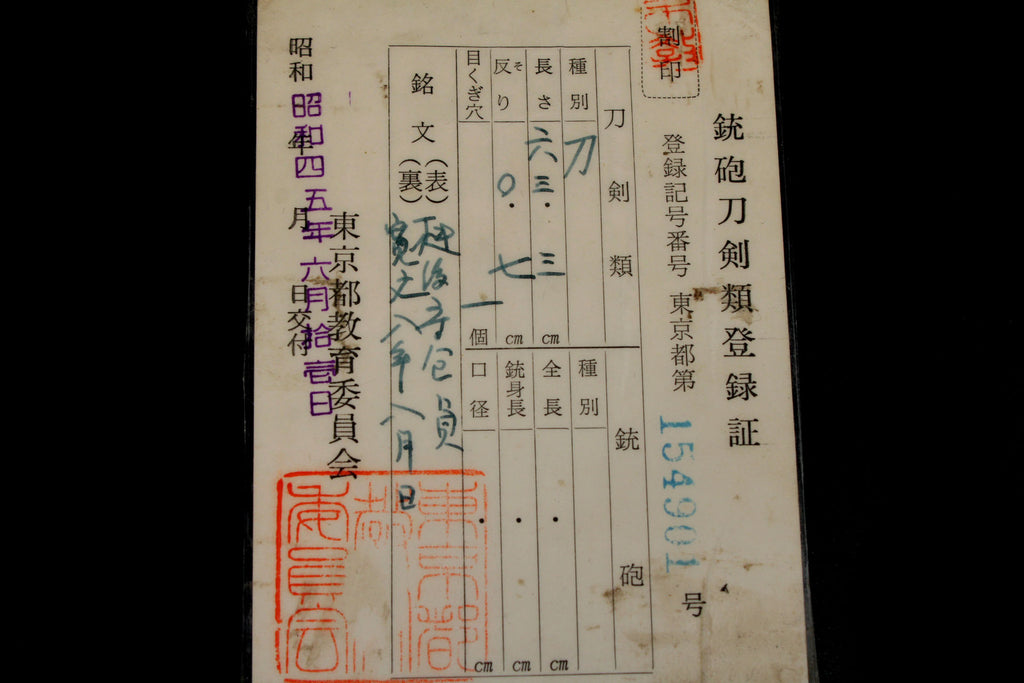 銃砲刀剣類登録証
割印
登録記号番号 東京都第 154901 号
刀剣類
種別 刀
長さ 六三・三 cm
反り 〇・七 cm
そ
目くぎ穴 一 個
銘文
(表)
(裏) 寛文八年八月日
銃砲
種別
全長 ・ cm
銃身長 ・ cm
口径 ・ cm
東京都教育委員会
昭和 年 月 日交付
昭和四五年六月拾壱日